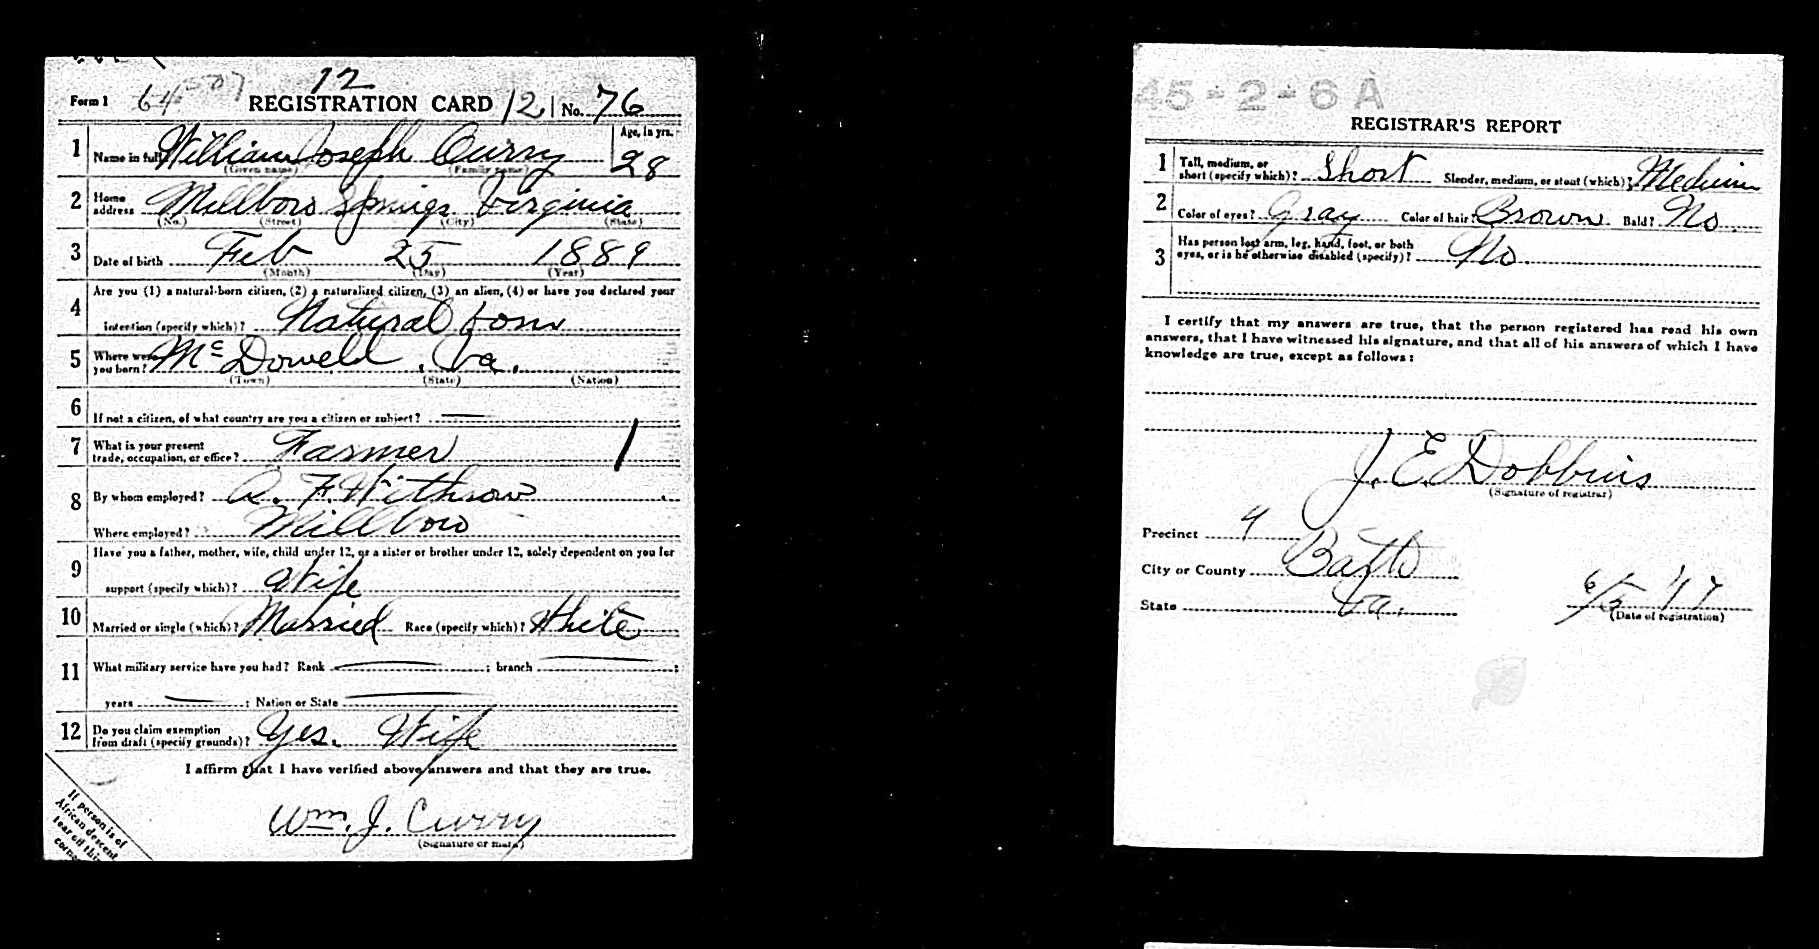 12
Form 1 REGISTRATION CARD 121 No. 76
1 Name in full William Joseph Curry Age, in yrs.
(Given name) (Family name) 28
2 Home address Millboro Springs Virginia
(No.) (Street) (City) (State)
3 Date of birth Feb 25 1889
(Month) (Day) (Year)
4 Are you (1) a natural-born citizen, (2) a naturalized citizen, (3) an alien, (4) or have you declared your
intention (specify which)? Natural born
5 Where were you born? McDowell, Va.
(Town) (State) (Nation)
6 If not a citizen, of what country are you a citizen or subject?
7 What is your present
trade, occupation, or office? Farmer
8 By whom employed? A. F. Withrow
Where employed? Millboro
9 Have you a father, mother, wife, child under 12, or a sister or brother under 12, solely dependent on you for
support (specify which)? Wife
10 Married or single (which)? Married Race (specify which)? White
11 What military service have you had? Rank ; branch ;
years ; Nation or State
12 Do you claim exemption
from draft (specify grounds)? Yes. Wife
I affirm that I have verified above answers and that they are true.
Wm. J. Curry
(Signature or mark)
If person is of
African descent
tear off this
corner
45-2-6 A
REGISTRAR'S REPORT
1 Tall, medium, or
short (specify which)? Short Slender, medium, or stout (which)? Medium
2 Color of eyes? Gray Color of hair? Brown Bald? No.
3 Has person lost arm, leg, hand, foot, or both
eyes, or is he otherwise disabled (specify)? No.
I certify that my answers are true, that the person registered has read his own
answers, that I have witnessed his signature, and that all of his answers of which I have
knowledge are true, except as follows:
J. E. Dobbins
(Signature of registrar)
Precinct 4
City or County Bath
State Va. 6/5 17
(Date of registration)